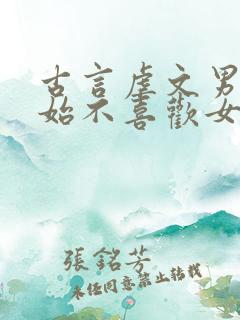 古言虐文男
始不喜歡女
張銘芳
未經同意禁止轉載